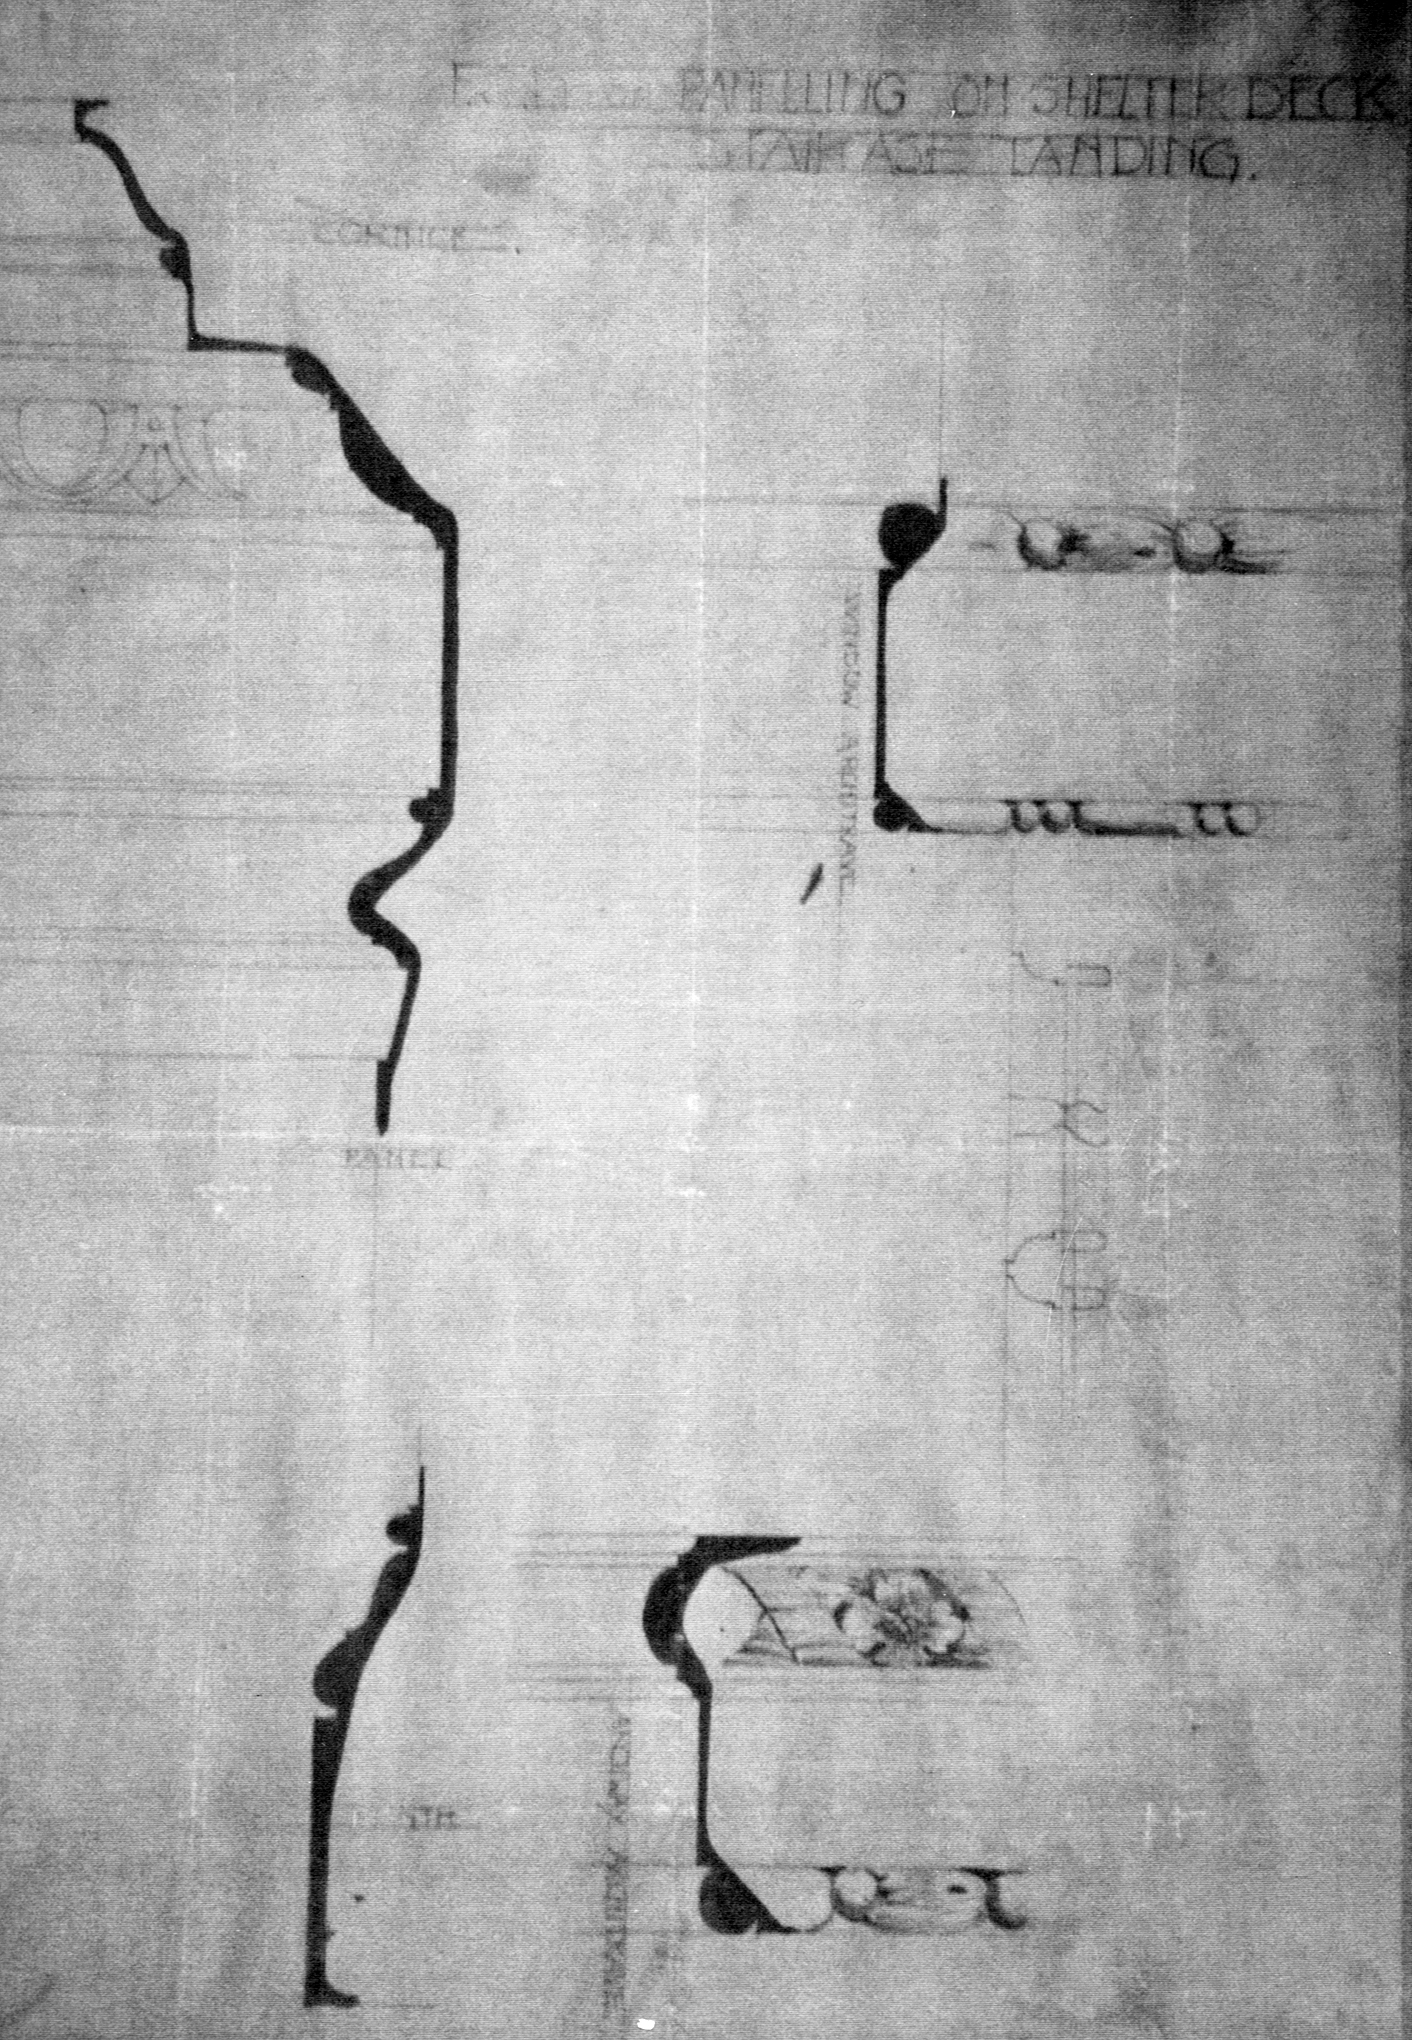 PANELLING ON SHELTER DECK
STAIRCASE LANDING.
CORNICE
WINDOW ARCHITRAVE
PANEL
PLINTH
ARCHITRAVE